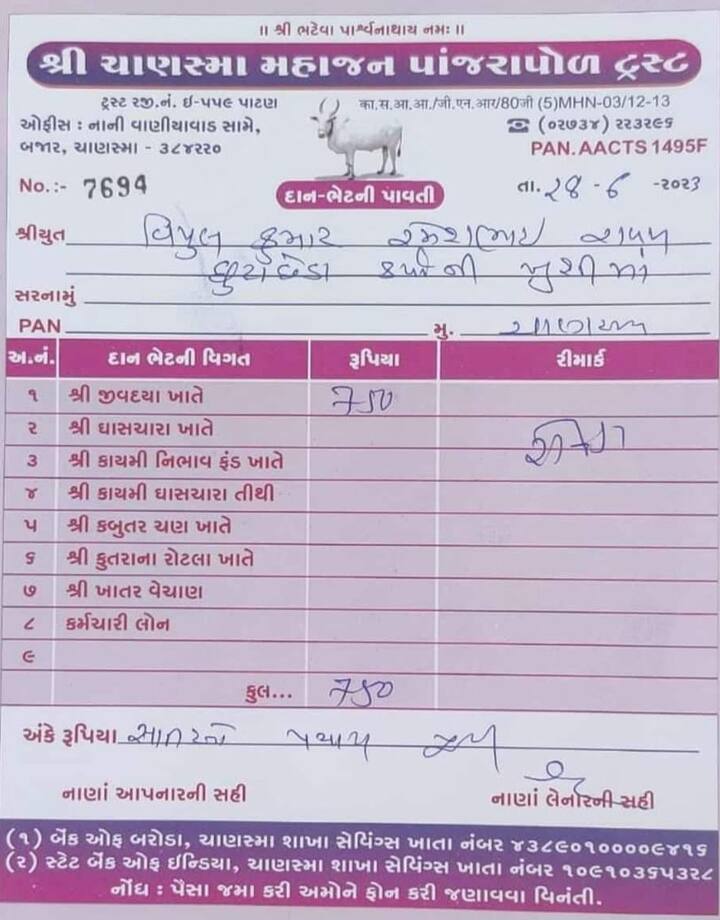 ।। શ્રી ભટેવા પાર્શ્વનાથાય નમઃ ।।
શ્રી ચાણસ્મા મહાજન પાંજરાપોળ ટ્રસ્ટ
ટ્રસ્ટ રજી.નં. ઈ-૫૫૯ પાટણ
ઓફીસ : નાની વાણીયાવાડ સામે,
બજાર, ચાણસ્મા - ૩૮૪૨૨૦
का.स.आ.आ./जी.एन.आर/80जी (5)MHN-03/12-13
☎ (૦૨૭૩૪) ૨૨૩૨૯૬
PAN. AACTS 1495F
No.:- 7694
દાન-ભેટની પાવતી
તા. ૨૮ - ૬ -૨૦૨૩
શ્રીયુત વિપુલ કુમાર રમેશભાઈ રાવળ
છુટાછેડા કર્યા ની ખુશી માં
સરનામું
PAN મુ. ચાણસ્મા
અ.નં. દાન ભેટની વિગત રૂપિયા રીમાર્ક
૧ શ્રી જીવદયા ખાતે ૭૫૦
૨ શ્રી ઘાસચારા ખાતે
૩ શ્રી કાયમી નિભાવ ફંડ ખાતે રોકડા
૪ શ્રી કાયમી ઘાસચારા તીથી
૫ શ્રી કબુતર ચણ ખાતે
૬ શ્રી કુતરાના રોટલા ખાતે
૭ શ્રી ખાતર વેચાણ
૮ કર્મચારી લોન
૯
કુલ... ૭૫૦
અંકે રૂપિયા સાતસો પચાસ પુરા
નાણાં આપનારની સહી
નાણાં લેનારની સહી
(૧) બેંક ઓફ બરોડા, ચાણસ્મા શાખા સેવિંગ્સ ખાતા નંબર ૪૩૮૯૦૧૦૦૦૦૯૪૧૬
(૨) સ્ટેટ બેંક ઓફ ઈન્ડિયા, ચાણસ્મા શાખા સેવિંગ્સ ખાતા નંબર ૧૦૯૧૦૩૬૫૩૨૮
નોંધ : પૈસા જમા કરી અમોને ફોન કરી જણાવવા વિનંતી.